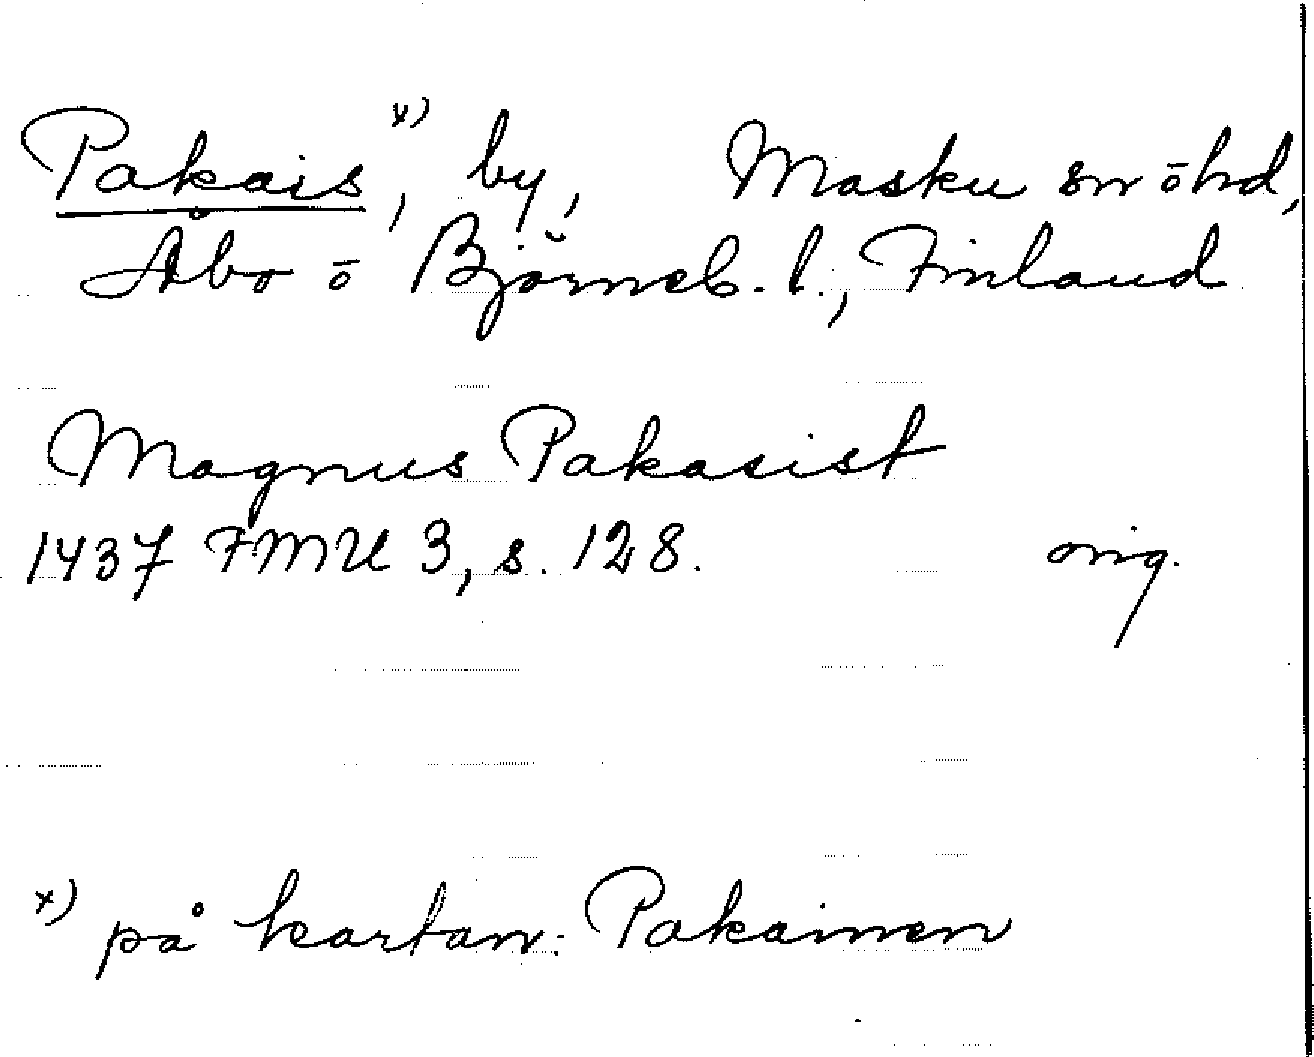 Pakais, x) by, Masku sn ōhd,
Åbo ō Björneb. l., Finland
Magnus Pakasist
1437 FMU 3, s. 128. orig.
x) på kartan: Pakainen